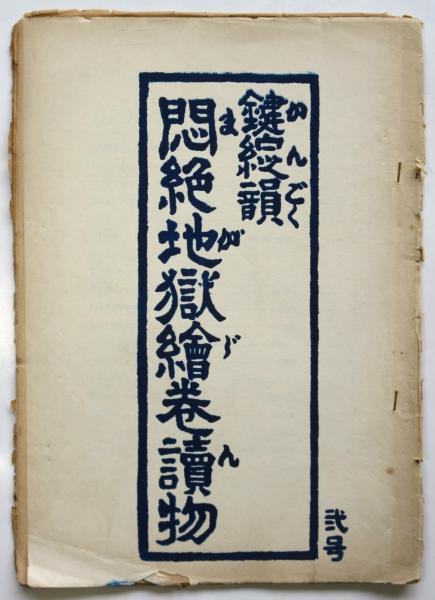 鍵綜韻
かんごく
悶絶地獄繪巻讀物
まがじん
弐号